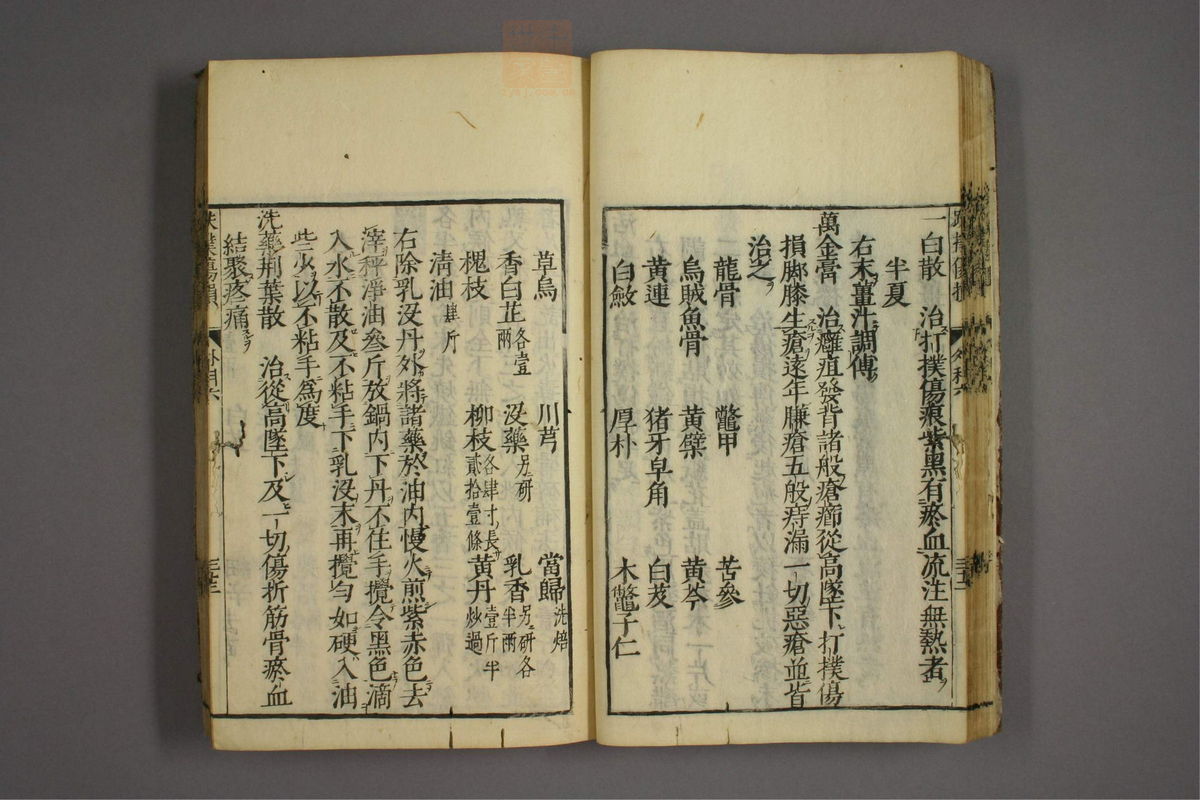 一白散 治打撲傷痕紫黑有瘀血流注無熱者
半夏
右末薑汁調傅
萬金膏 治癰疽發背諸般瘡癤從高墜下打撲傷
損脚膝生瘡遠年臁瘡五般痔漏一切惡瘡並皆
治之
龍骨 鼈甲 苦參
烏賊魚骨 黄蘗 黄芩
黄連 猪牙皁角 白芨
白斂 厚朴 木鼈子仁
草烏 川芎 當歸洗焙
香白芷各壹兩 沒藥另研 乳香另研各半兩
槐枝 柳枝各肆寸長貳拾壹條 黄丹壹斤半炒過
清油 斤
右除乳沒丹外將諸藥於油內慢火煎紫赤色去
滓秤淨油叄斤放鍋內下丹不住手攪令黑色滴
入水不散及不粘手下乳沒末再攪勻如硬入油
些少以不粘手爲度
洗藥荆葉散 治從高墜下及一切傷折筋骨瘀血
結聚疼痛